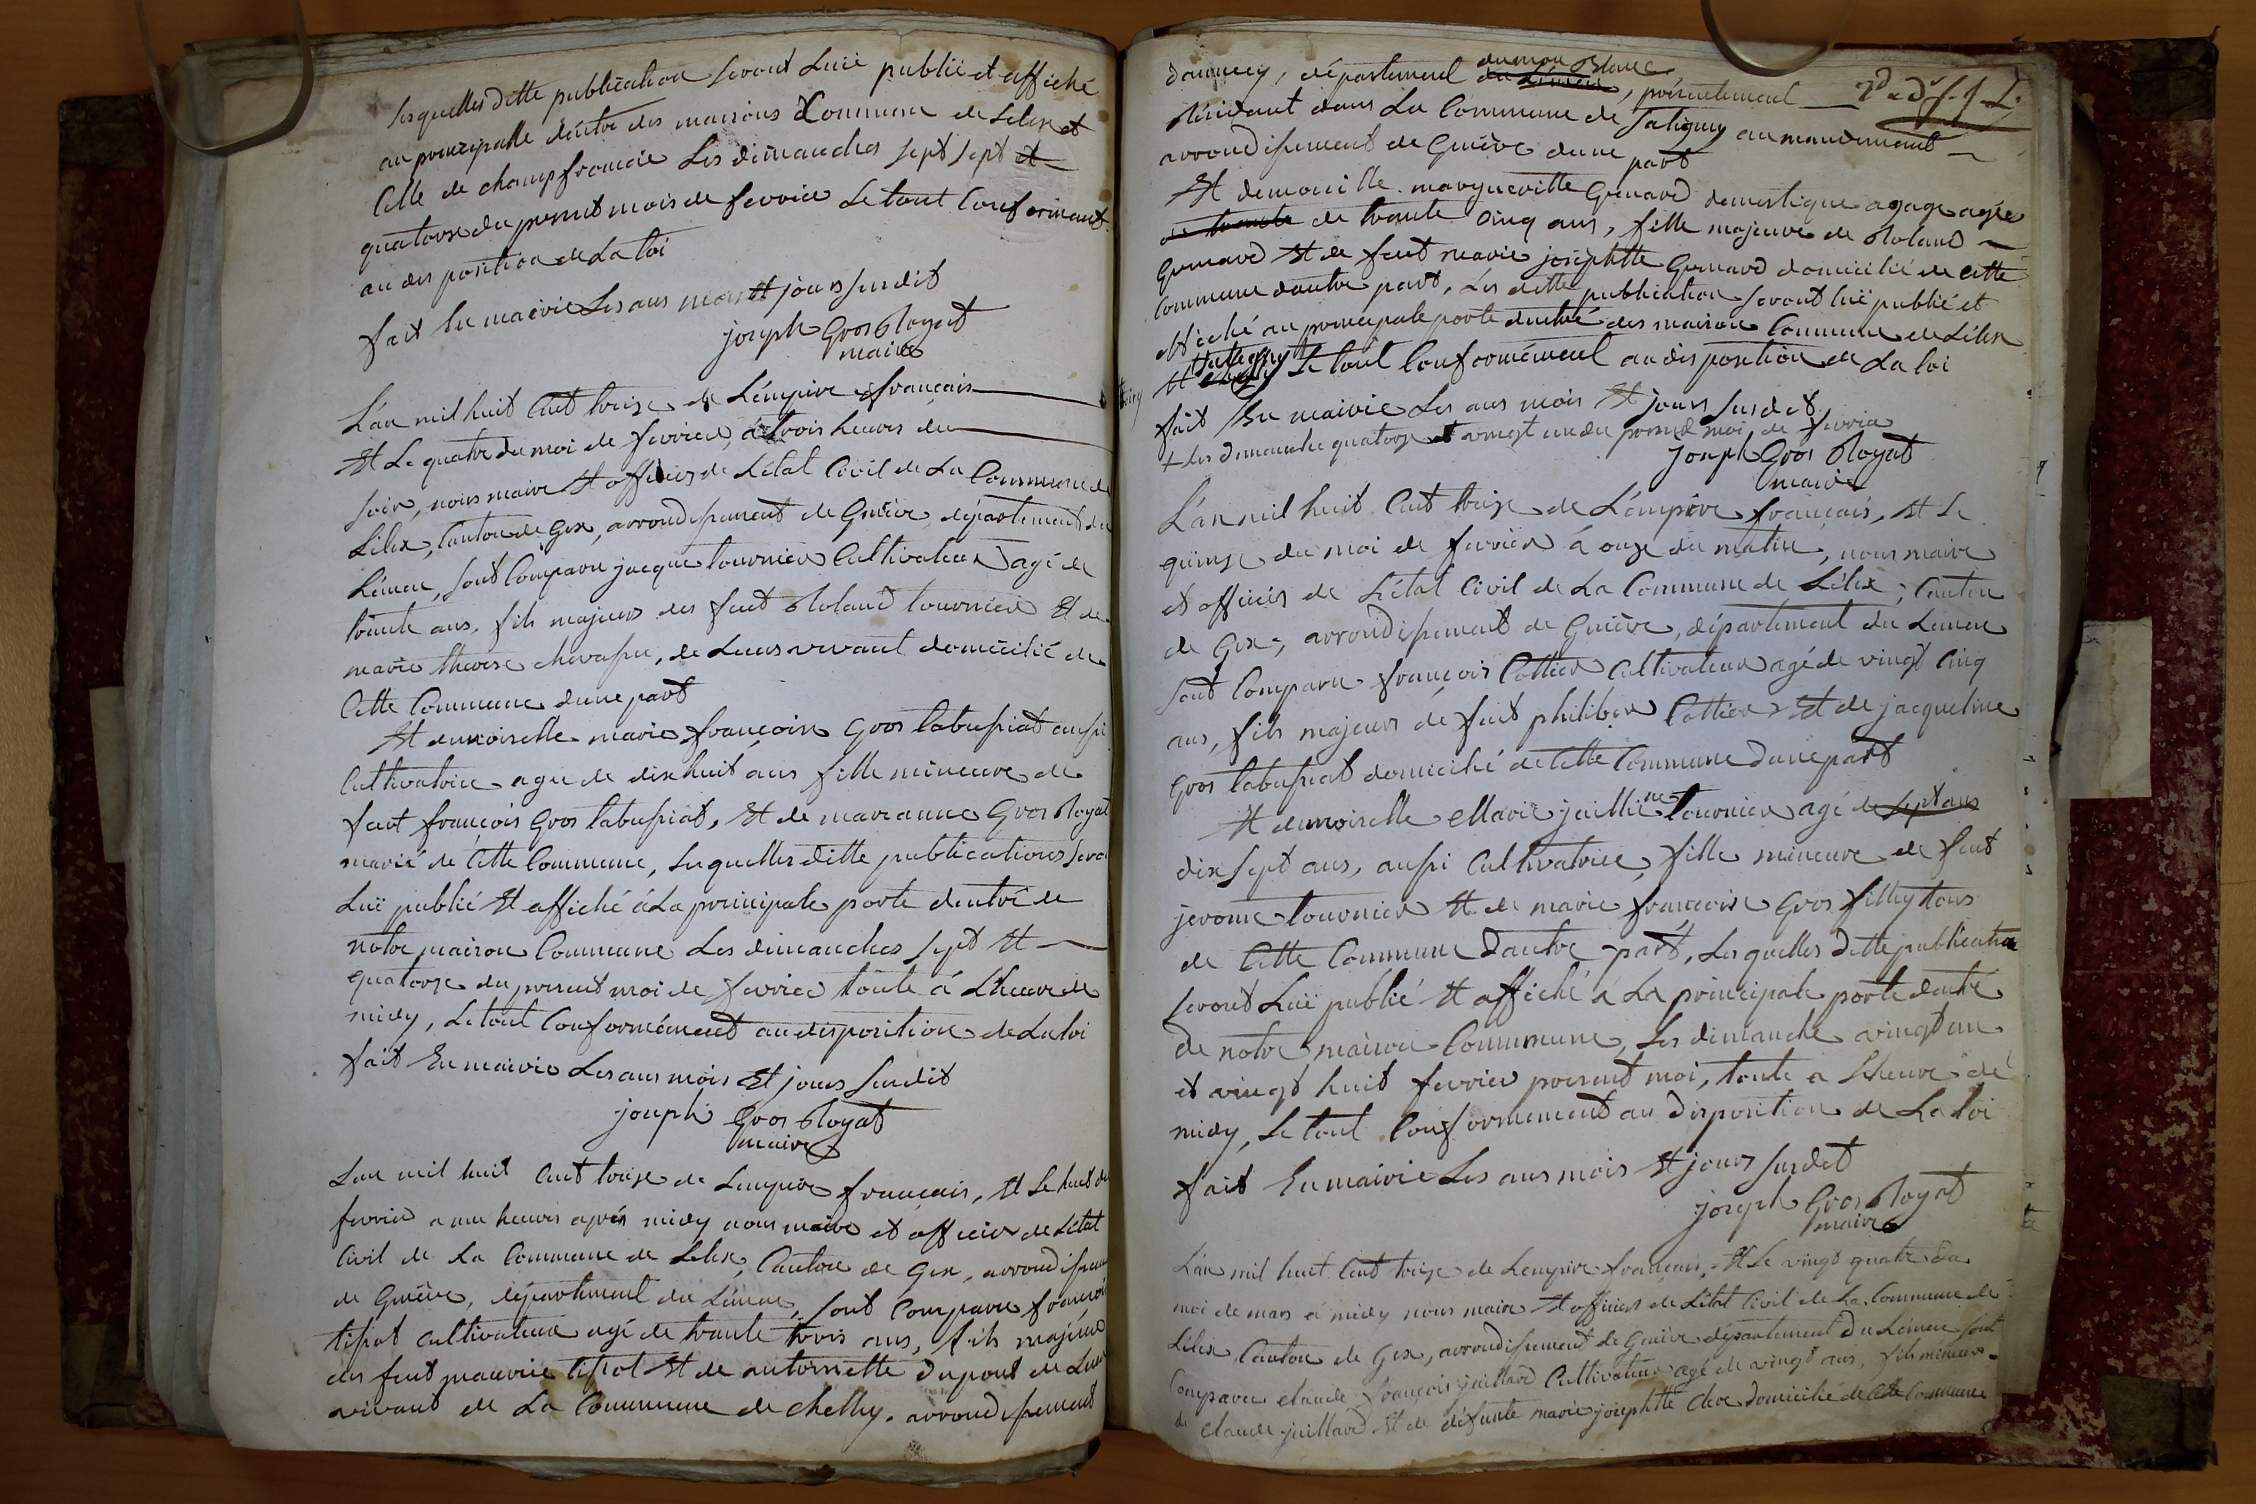 lesquelles ditte publication seront Luë publié et affiché
au principalle d'entre des maisons Commune de Lelex et
Celle de champfromie Les dimanches sept sept et
quatorze du present mois de fevrier Le tout Conformement
au disposition de La loi
fait En mairie Les ans mois Et jours susdit
joseph Gros Royat
maire
L'an mil huit Cent treize de L'émpire français
Et Le quatre du moi de fevrier, à trois heures du
soir, nous maire Et officier de L'état Civil de La Commune de
Lélex, Canton de Gex, arrondissement de Genève, département du
Léman, sont Comparu jacque tournier Cultivateur agé de
trante ans, fils majeur des feut Roland tournier Et de
marie therese chevassu, de Leurs vivant domicilié de
Cette Commune d'une part
Et demoiselle marie françoise Gros labussiat aussi
Cultivatrice agée de dixhuit ans fille mineure de
feut françois Gros labussiat, Et de marianne Gros Royat
marié de Cette Commune, lesquelles ditte publications sero
Luë publié Et affiché à La principale porte d'entré de
notre maison Commune Les dimanches sept Et
quatorze du present moi de fevrier toute à L'heure de
midy, Le tout Conformément au disposition de La loi
fait En mairie Les ans mois Et jours susdit
joseph Gros Royat
maire
L'an mil huit Cent treize de L'empire français, Et Le huit du
fevrier a une heures aprés midy nous maire et officier de L'état
Civil de La Commune de Lelex, Canton de Gex, arrondissem
de Genève, département du Léman, sont Comparu françois
tissot Cultivateur agé de trante trois ans, fils majeur
des feut maurice tissot Et de antoinette dupont de Leur
vivant de La Commune de chessy, arrondissement
2d a d f. J. L.
d'annecy, département du Léman du mon Blanc, présentement
Résident dans La Commune de Satigny au mandement
arrondissement de Genève d'une part
Et demoiselle margueritte Grenard domestique a gage agée
de trante de trante Cinq ans, fille majeure de Roland
Grenard Et de feut marie josephtte Grenard domicilié de Cette
Commune d'autre part, Les dittes publication seront luë publié et
Affiché au principale porte d'entré des maison Commune de Lélex
Et chessy Satigny Le tout Conformément au disposition de La loi
fait En mairie Les ans mois Et jours susdit
+ les dimanche quatorze et vingt un du present moi de fevrier
joseph Gros Royat
maire
L'an mil huit Cent treize de L'émpire français, Et Le
quinze du moi de fevrier à onze du matin, nous maire
et officier de L'état Civil de La Commune de Lélex, Canton
de Gex, arrondissement de Genève, département du Léman
sont Comparu françois Cottier Cultivateur agé de vingt Cinq
ans, fils majeur de feut philiber Cottier Et de jacqueline
Gros labussiat domicilié de Cette Commune d'une part
Et demoiselle Marie jailline tournier agé de sept ans
dix sept ans, aussi Cultivatrice, fille mineure de feut
jerome tournier Et de marie françoise Gros fillioz tous
de Cette Commune d'autre part, Lesquelles ditte publication
seront Luë publié Et affiché à La principale porte d'entré
de notre maison Commune, Les dimanche vingt un
et vingt huit fevrier present moi, toute a L'heure dé
midy, Le tout Conformement au disposition de La loi
fait En mairie Les ans mois Et jours susdit
joseph Gros Royat
maire
L'an mil huit Cent treize de L'empire français, Et Le vingt quatre du
moi de mars à midy nous maire Et officier de L'état Civil de La Commune de
Lélex Canton de Gex, arrondissement de Genève département du Léman sont
Comparu claude françois juillard Cultivateur agé de vingt ans, fils mineur
de claude juillard Et de défunte marie josephtte Clerc domicilié de Cette Commune